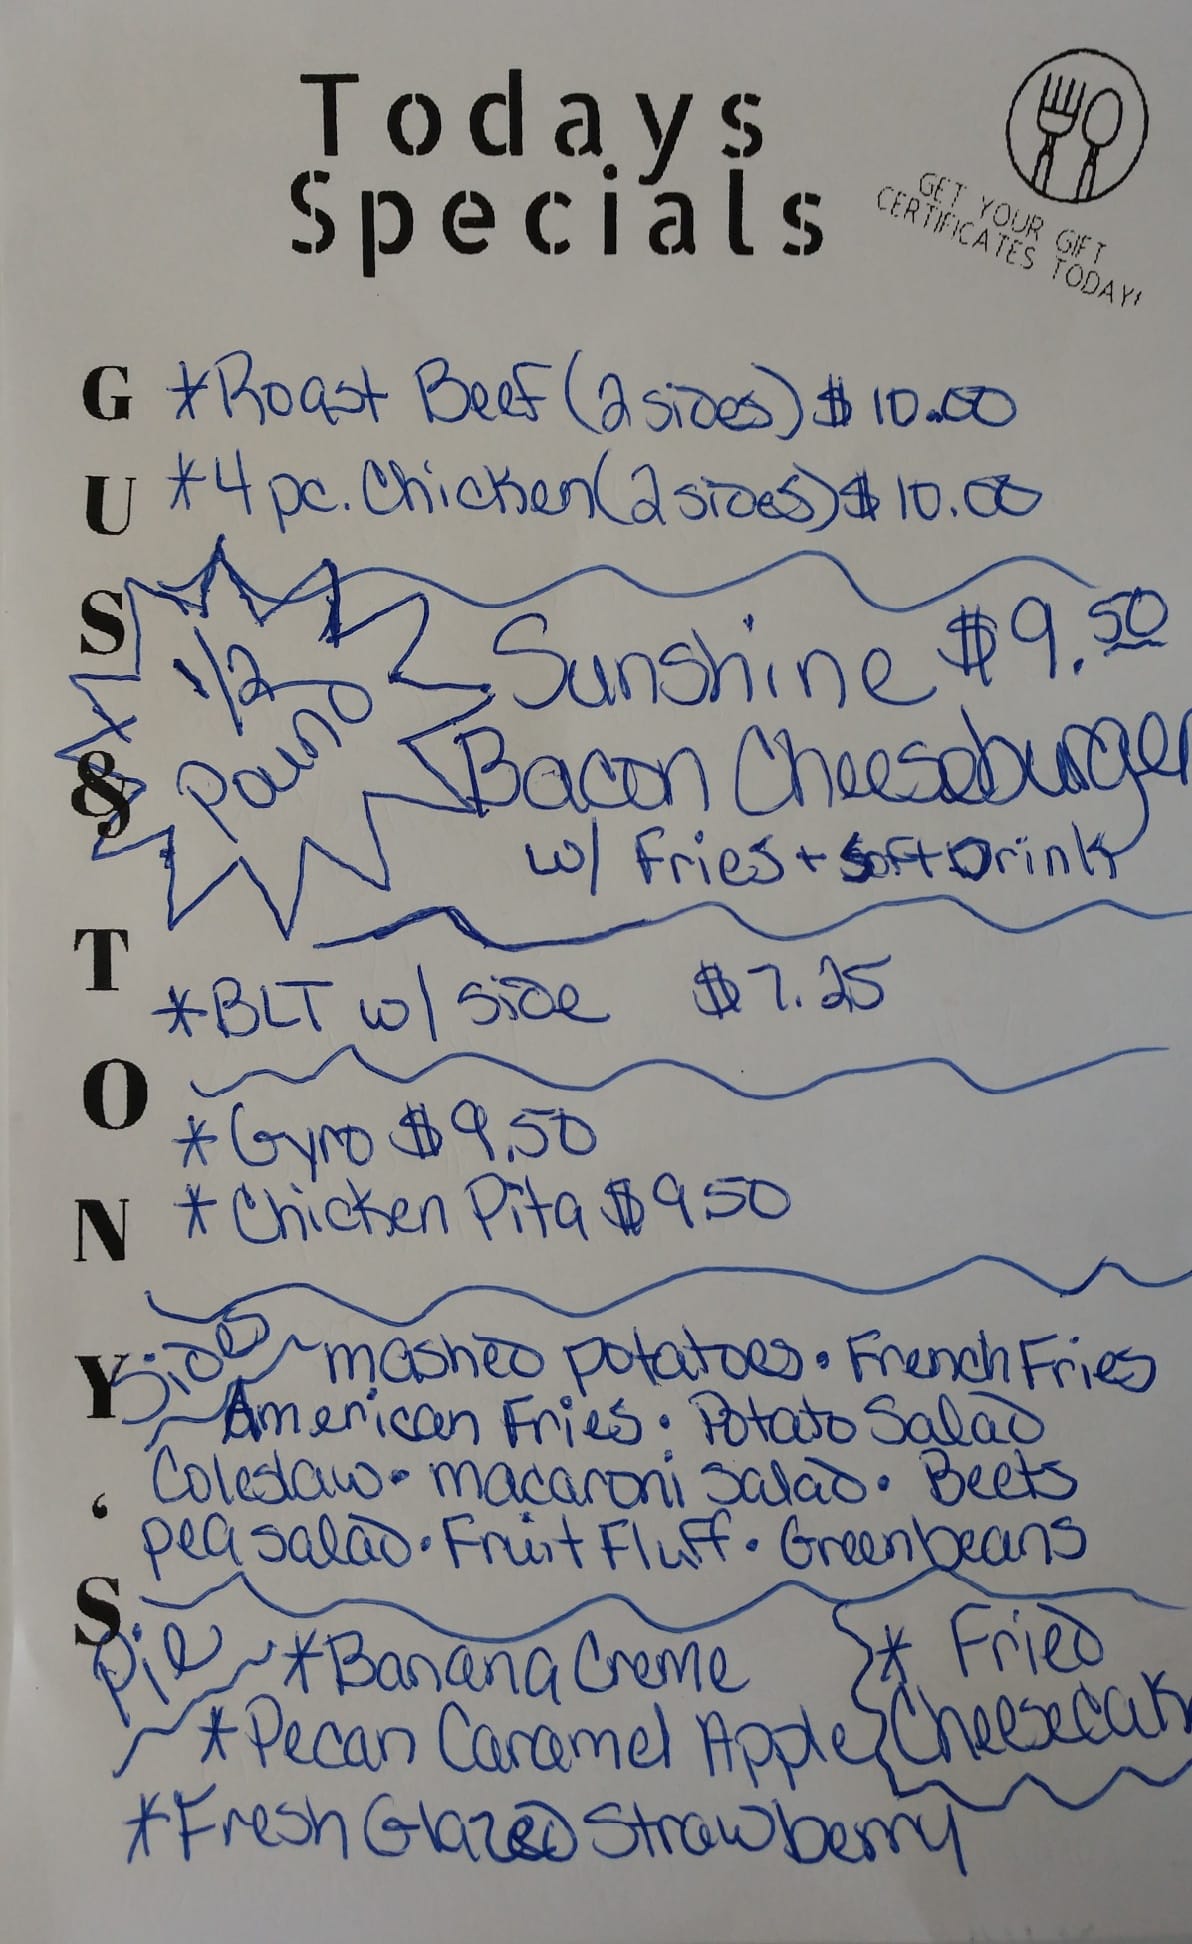 Todays
Specials
GET YOUR GIFT
CERTIFICATES TODAY!
GUS & TONY'S
*Roast Beef (2 sides) $10.00
*4 pc. Chicken (2 sides) $10.00
1/2
pound
Sunshine $9.50
Bacon Cheeseburger
w/ Fries + Soft Drink
*BLT w/ side $7.25
*Gyro $9.50
*Chicken Pita $9.50
Sides ~ mashed potatoes • French Fries
American Fries • Potato Salad
Coleslaw • macaroni salad • Beets
pea salad • Fruit Fluff • Greenbeans
Pie ~ *Banana Creme
*Pecan Caramel Apple
*Fresh Glazed Strawberry
* Fried
Cheesecak